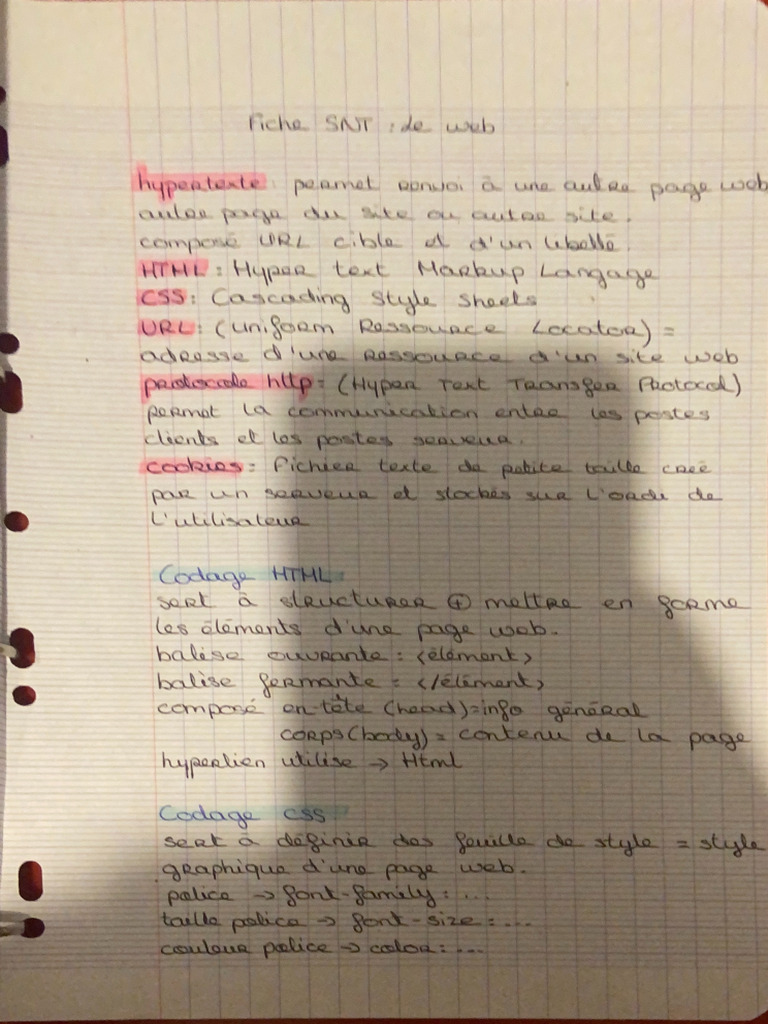 Fiche SNT : de web
hypertexte permet renvoi à une autre page web
autre page du site ou autre site.
composé URL cible et d'un libellé.
HTML : Hyper text Markup Langage
CSS : Cascading Style Sheets
URL : (Uniform Ressource Locator) =
adresse d'une ressource d'un site web
protocole http = (Hyper Text Transfer Protocol)
permet la communication entre les postes
clients et les postes serveur.
cookies = Fichier texte de petite taille créé
par un serveur et stockés sur l'ordi de
l'utilisateur
Codage HTML
sert à structurer ⊕ mettre en forme
les éléments d'une page web.
balise ouvrante : <élément>
balise fermante = </élément>
composé en-tête (head) = info général
corps (body) = contenu de la page
hyperlien utilise → Html
Codage CSS
sert à définir des feuille de style = style
graphique d'une page web.
police → font-family : ...
taille police → font-size : ...
couleur police → color : ...